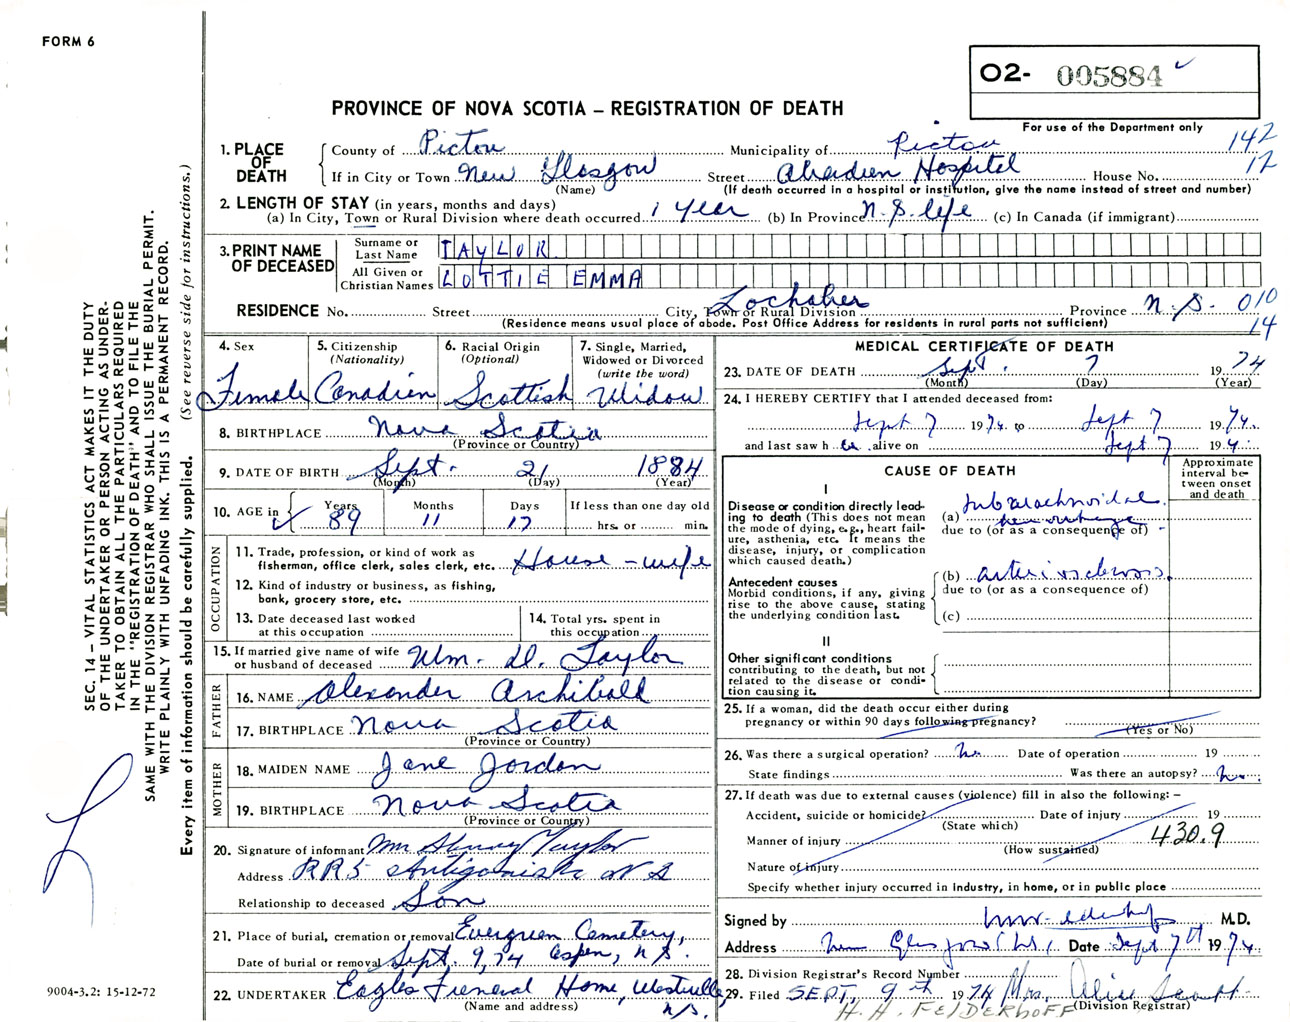 FORM 6
O2- 005884
PROVINCE OF NOVA SCOTIA – REGISTRATION OF DEATH
For use of the Department only
1. PLACE OF DEATH
County of Pictou Municipality of Pictou 142
If in City or Town New Glasgow Street Aberdeen Hospital House No. 12
(Name) (If death occurred in a hospital or institution, give the name instead of street and number)
2. LENGTH OF STAY (in years, months and days)
(a) In City, Town or Rural Division where death occurred 1 Year (b) In Province N.S. life (c) In Canada (if immigrant)
3. PRINT NAME OF DECEASED
Surname or Last Name TAYLOR
All Given or Christian Names LOTTIE EMMA
RESIDENCE No. Street City, Town or Rural Division Lochaber Province N.S. 010
(Residence means usual place of abode. Post Office Address for residents in rural parts not sufficient) 14
4. Sex Female
5. Citizenship (Nationality) Canadian
6. Racial Origin (Optional) Scottish
7. Single, Married, Widowed or Divorced (write the word) Widow
8. BIRTHPLACE Nova Scotia
(Province or Country)
9. DATE OF BIRTH Sept. 21 1884
(Month) (Day) (Year)
10. AGE in Years 89 Months 11 Days 17 If less than one day old hrs. or min.
OCCUPATION
11. Trade, profession, or kind of work as fisherman, office clerk, sales clerk, etc. House-wife
12. Kind of industry or business, as fishing, bank, grocery store, etc.
13. Date deceased last worked at this occupation
14. Total yrs. spent in this occupation
15. If married give name of wife or husband of deceased Wm. D. Taylor
FATHER
16. NAME Alexander Archibald
17. BIRTHPLACE Nova Scotia
(Province or Country)
MOTHER
18. MAIDEN NAME Jane Jordan
19. BIRTHPLACE Nova Scotia
(Province or Country)
20. Signature of informant Taylor
Address RR5 Antigonish NS
Relationship to deceased Son
21. Place of burial, cremation or removal Evergreen Cemetery,
Date of burial or removal Sept. 9, 74 Aspen, N.S.
22. UNDERTAKER Eagles Funeral Home, Westville, N.S.
(Name and address)
MEDICAL CERTIFICATE OF DEATH
23. DATE OF DEATH Sept. 7 1974
(Month) (Day) (Year)
24. I HEREBY CERTIFY that I attended deceased from:
Sept 7 1974 to Sept 7 1974.
and last saw her alive on Sept 7 194.
CAUSE OF DEATH
Approximate interval between onset and death
I
Disease or condition directly leading to death (This does not mean the mode of dying, e.g., heart failure, asthenia, etc. It means the disease, injury, or complication which caused death.)
(a) subarachnoidal hemorrhage
due to (or as a consequence of)
Antecedent causes
Morbid conditions, if any, giving rise to the above cause, stating the underlying condition last.
(b) arteriosclerosis.
due to (or as a consequence of)
(c)
II
Other significant conditions
contributing to the death, but not related to the disease or condition causing it.
25. If a woman, did the death occur either during pregnancy or within 90 days following pregnancy?
(Yes or No)
26. Was there a surgical operation? no. Date of operation 19
State findings Was there an autopsy? no.
27. If death was due to external causes (violence) fill in also the following: –
Accident, suicide or homicide? Date of injury 19
(State which)
Manner of injury 430.9
(How sustained)
Nature of injury
Specify whether injury occurred in industry, in home, or in public place
Signed by M.D.
Address New Glasgow N.S. Date Sept 7th 1974.
28. Division Registrar's Record Number
29. Filed SEPT, 9th 1974 Mrs. Alice Scott
(Division Registrar)
H. H. FELDERHOFF
SEC. 14 – VITAL STATISTICS ACT MAKES IT THE DUTY
OF THE UNDERTAKER OR PERSON ACTING AS UNDER-
TAKER TO OBTAIN ALL THE PARTICULARS REQUIRED
IN THE "REGISTRATION OF DEATH" AND TO FILE THE
SAME WITH THE DIVISION REGISTRAR WHO SHALL ISSUE THE BURIAL PERMIT.
WRITE PLAINLY WITH UNFADING INK. THIS IS A PERMANENT RECORD.
Every item of information should be carefully supplied. (See reverse side for instructions.)
9004-3.2: 15-12-72